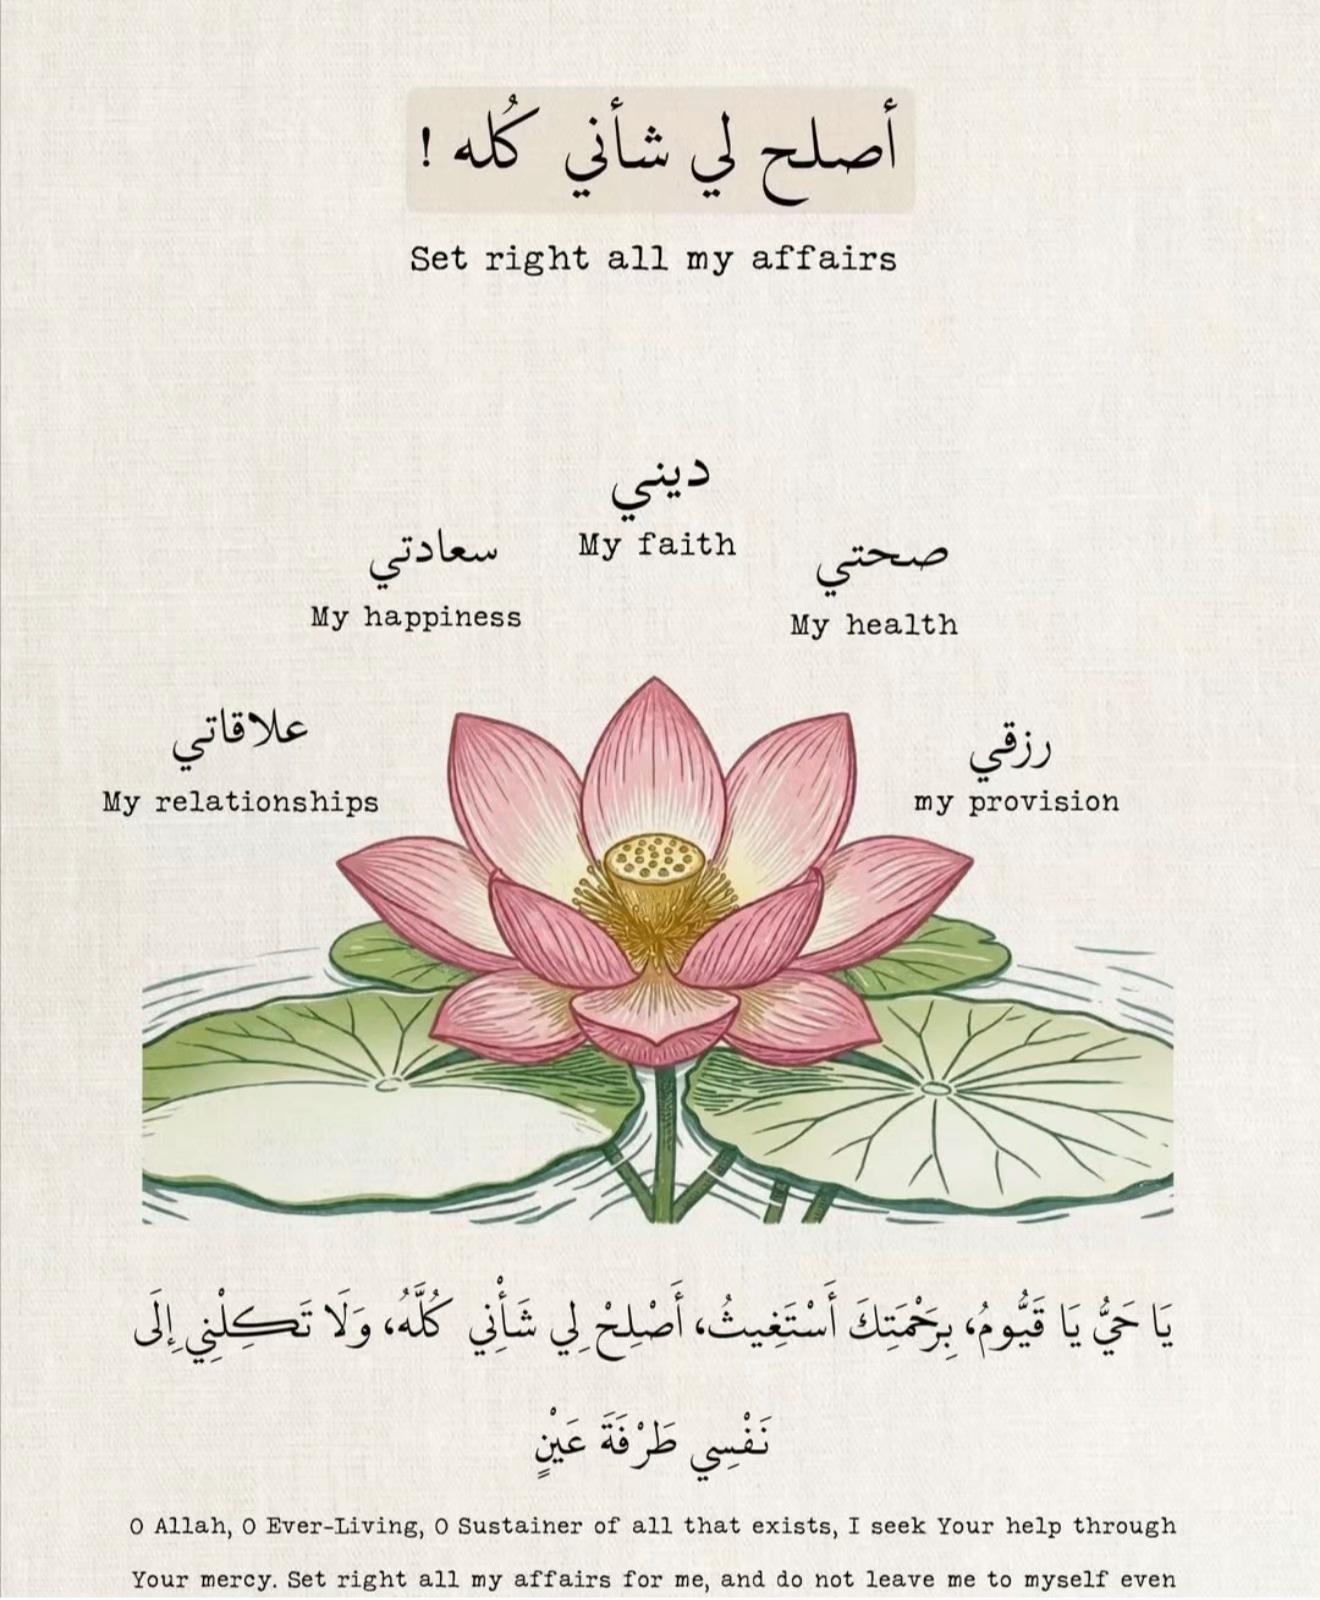 أصلح لي شأني كُله !
Set right all my affairs
ديني
My faith
سعادتي
My happiness
صحتي
My health
علاقاتي
My relationships
رزقي
my provision
يَا حَيُّ يَا قَيُّومُ، بِرَحْمَتِكَ أَسْتَغِيثُ، أَصْلِحْ لِي شَأْنِي كُلَّهُ، وَلَا تَكِلْنِي إِلَى
نَفْسِي طَرْفَةَ عَيْنٍ
O Allah, O Ever-Living, O Sustainer of all that exists, I seek Your help through
Your mercy. Set right all my affairs for me, and do not leave me to myself even